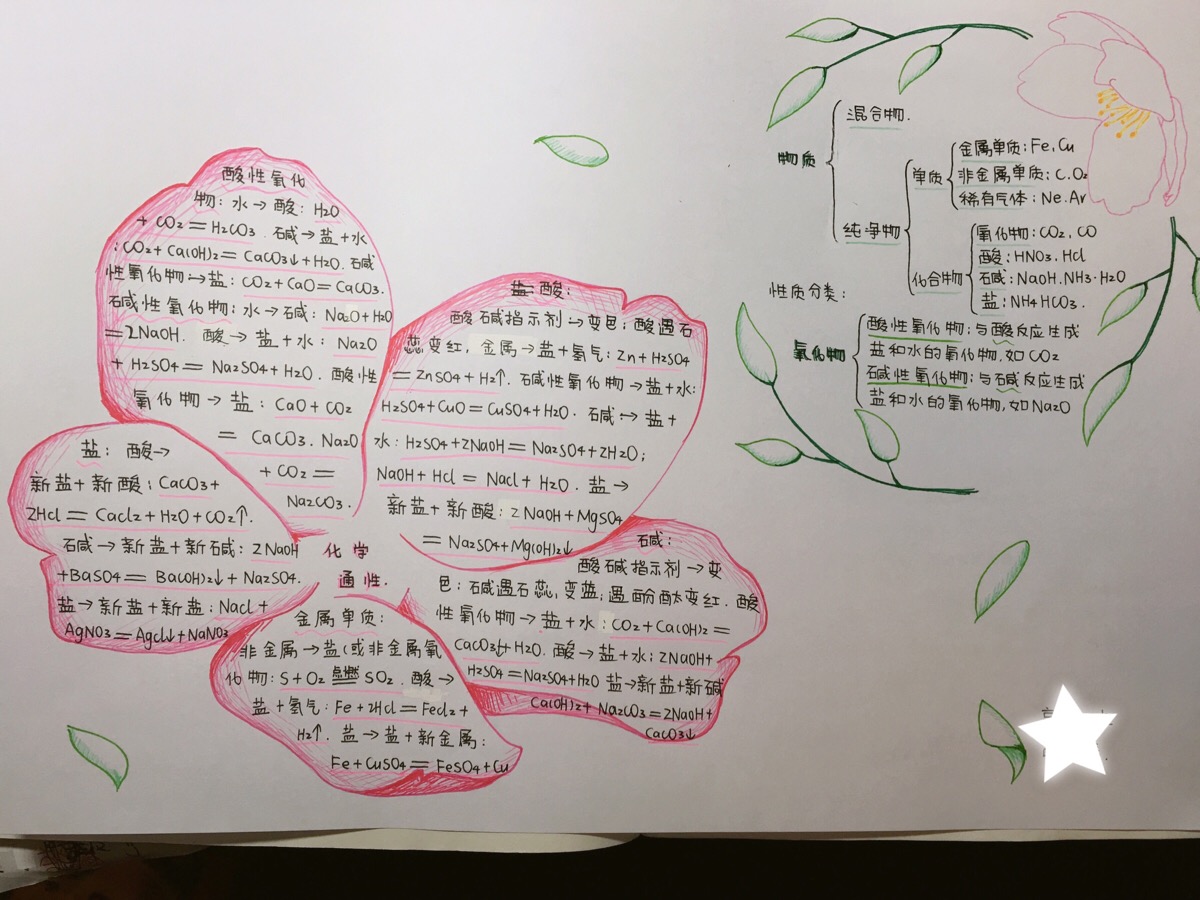 酸性氧化
物：水→酸：H2O
+ CO2 = H2CO3. 碱→盐+水
：CO2+Ca(OH)2=CaCO3↓+H2O. 碱
性氧化物→盐：CO2+CaO=CaCO3.
碱性氧化物：水→碱：Na2O+H2O
=2NaOH. 酸→盐+水：Na2O
+H2SO4=Na2SO4+H2O. 酸性
氧化物→盐：CaO+CO2
=CaCO3. Na2O
+CO2=
Na2CO3.
酸：
酸碱指示剂→变色；酸遇石
蕊变红，金属→盐+氢气：Zn+H2SO4
=ZnSO4+H2↑. 碱性氧化物→盐+水：
H2SO4+CuO=CuSO4+H2O. 碱→盐+
水：H2SO4+2NaOH=Na2SO4+2H2O；
NaOH+Hcl=Nacl+H2O. 盐→
新盐+新酸：2NaOH+MgSO4
=Na2SO4+Mg(OH)2↓
盐：酸→
新盐+新酸：CaCO3+
2HCl=Cacl2+H2O+CO2↑.
碱→新盐+新碱：2NaOH
+BaSO4=Ba(OH)2↓+Na2SO4.
盐→新盐+新盐：Nacl+
AgNO3=Agcl↓+NaNO3
化学
通性.
金属单质：
非金属→盐(或非金属氧
化物：S+O2 点燃= SO2. 酸→
盐+氢气：Fe+2Hcl=Fecl2+
H2↑. 盐→盐+新金属：
Fe+CuSO4=FeSO4+Cu
碱：
酸碱指示剂→变
色：碱遇石蕊，变蓝；遇酚酞变红. 酸
性氧化物→盐+水：CO2+Ca(OH)2=
CaCO3↓+H2O. 酸→盐+水；2NaOH+
H2SO4=Na2SO4+H2O 盐→新盐+新碱
Ca(OH)2+Na2CO3=2NaOH+
CaCO3↓
物质
混合物.
纯净物
单质
金属单质：Fe，Cu
非金属单质：C.O2
稀有气体：Ne.Ar
化合物
氧化物：CO2，CO
酸：HNO3.Hcl
碱：NaOH.NH3·H2O
盐：NH4HCO3.
性质分类：
氧化物
酸性氧化物：与酸反应生成
盐和水的氧化物，如CO2
碱性氧化物；与碱反应生成
盐和水的氧化物，如Na2O